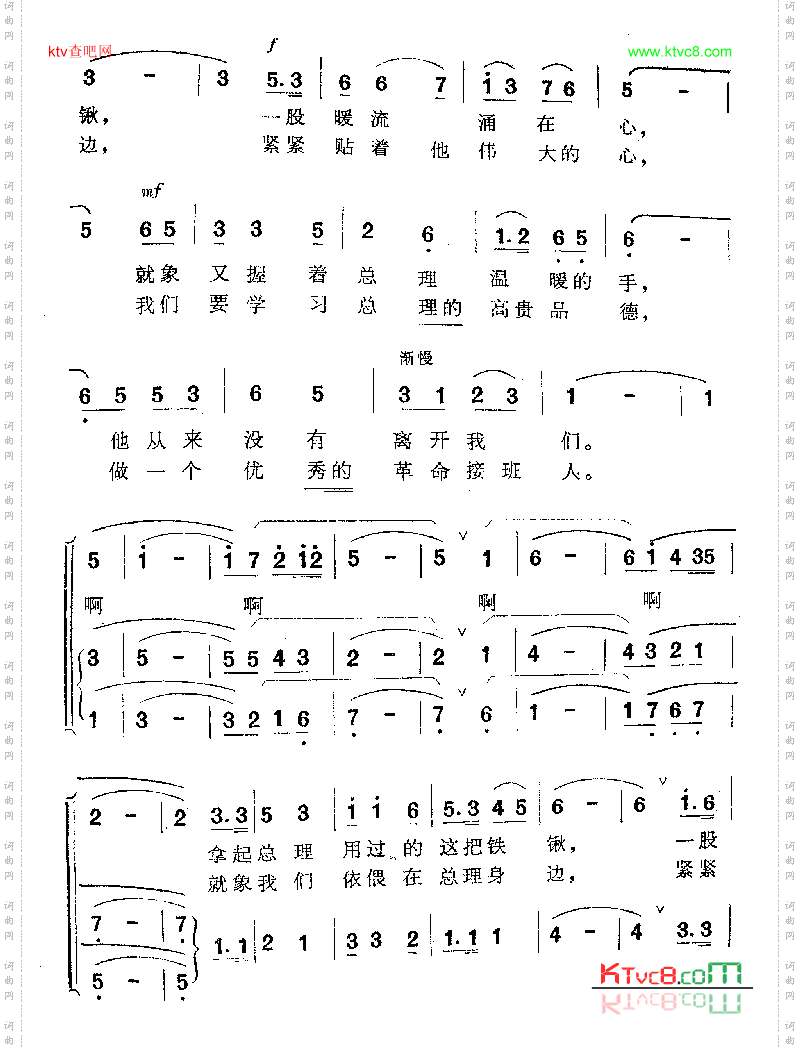 ktv查吧网 www.ktvc8.com
f
3 - 3 5.3 6 6 7 i 3 7 6 5 -
锹， 一股 暖 流 涌 在 心，
边， 紧紧 贴 着 他 伟 大的 心，
mf
5 6 5 3 3 5 2 6 1.2 6 5 6 -
就象 又 握 着 总 理 温 暖的 手，
我们 要 学 习 总 理的 高贵 品 德，
渐慢
6 5 5 3 6 5 3 1 2 3 1 - 1
他 从 来 没 有 离 开 我 们。
做 一 个 优 秀的 革 命 接 班 人。
5 i - i 7 2 i2 5 - 5 ∨ 1 6 - 6 i 4 35
啊 啊 啊 啊
3 5 - 5 5 4 3 2 - 2 ∨ 1 4 - 4 3 2 1
1 3 - 3 2 1 6 7 - 7 ∨ 6 1 - 1 7 6 7
2 - 2 3.3 5 3 i i 6 5.3 4 5 6 - 6 ∨ i.6
拿起 总 理 用 过 的 这把 铁 锹， 一股
就象 我 们 依 偎 在 总理 身 边， 紧紧
7 - 7 1.1 2 1 3 3 2 1.1 1 1 4 - 4 ∨ 3.3
5 - 5
KTvc8.com
词曲网